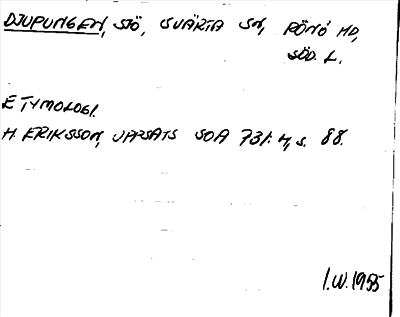 DJUPUNGEN, SJÖ, SVÄRTA SN, RÖNÖ HD,
SÖD. L.
ETYMOLOGI.
H. ERIKSSON, UPPSATS SOA 731:4, s. 88.
I.W. 1955